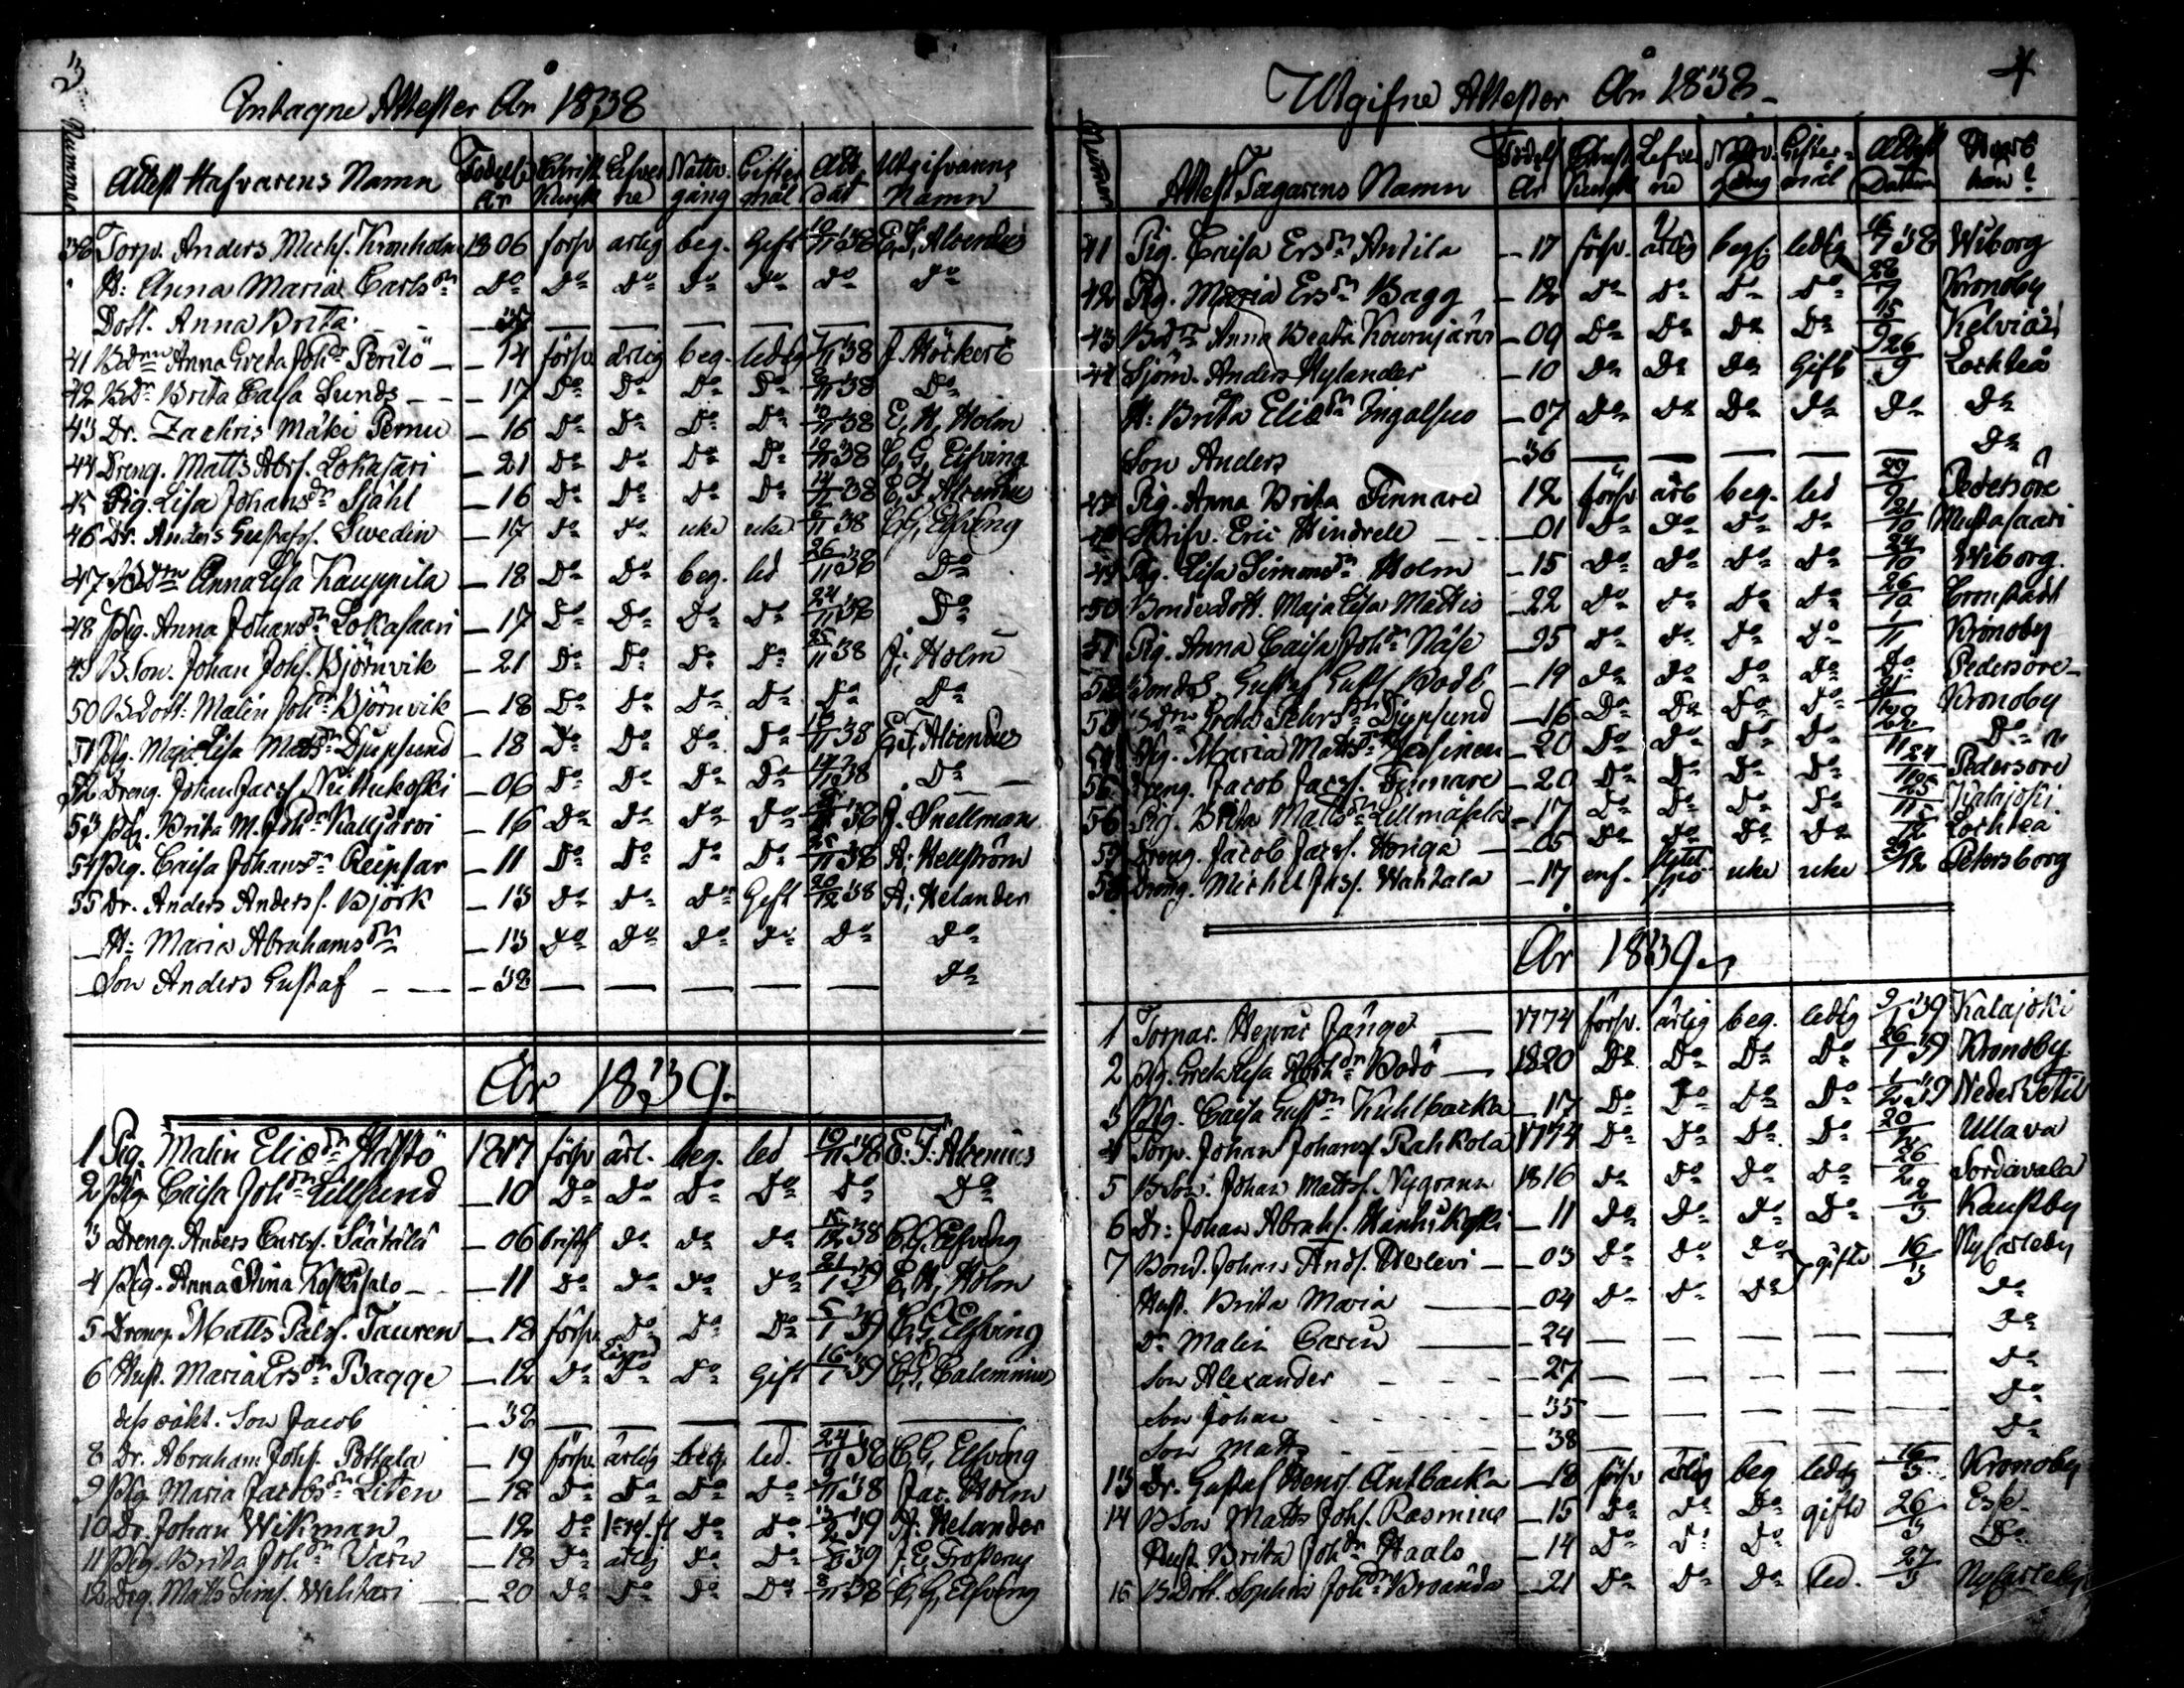 3
Antagne Attester År 1838
Nummer Attest Hafvarens Namn Födelse År Christ. Kunsk Lefver ne Nattv. gång Gifter mål Att. dat Utgifvarens Namn
38 Torp. Anders Michs. Kronholm 1806 försv. ärlig beg. Gift 38 E. J. Alcenius
" H: Anna Maria Carlsdr Do Do Do Do Do Do Do
Dott. Anna Brita
41 Bdr Anna Greta Johdr Perilö 14 försv. ärlig beg. ledig 38 J. Höckert
42 Bdr Brita Caisa Lunds 17 Do Do Do Do 38 Do
43 Dr. Zachris Mäki Pernu 16 Do Do Do Do 38 E. H. Holm
44 Dreng. Matts Abrs. Lokasari 21 Do Do Do Do 38 C. G. Elfving
45 Pig. Lisa Johansdr Ståhl 16 Do Do Do Do 38 E. J. Alcenius
46 Dr. Anders Gustafs. Swedin 17 Do Do uke uke 38 C. G. Elfving
47 Bdr Anna Lisa Kauppila 18 Do Do beg. led 26/11 38 Do
48 Pig. Anna Johansdr Lokasaari 17 Do Do Do Do 24/11 38 Do
49 B. Son. Johan Johs. Björnvik 21 Do Do Do Do 25/11 38 J. Holm
50 B. Dott: Malin Johdr Björnvik 18 Do Do Do Do Do Do
51 Pig. Maja Lisa Matsdr Djupsund 18 Do Do Do Do 38 E. J. Alcenius
52 Dreng. Johan Jacs. Niittukoski 06 Do Do Do Do 38 Do
53 Pig. Brita M. Johdr Kalljärvi 16 Do Do Do Do 38 J. Snellman
54 Pig. Caisa Johansdr Reipsar 11 Do Do Do Do 38 A. Hellström
55 Dr. Anders Anderss. Björk 13 Do Do Do Gift 20/12 38 A. Helander
H: Maria Abrahamsdr 13 Do Do Do Do Do Do
Son Anders Gustaf 38 Do
År 1839.
1 Pig. Malin Eliedr Hästö 1817 försv ärl. beg. led 38 E. J. Alcenius
2 Pig Caisa Johdr Lillsund 10 Do Do Do Do Do Do
3 Dreng. Anders Ericss. Säätälä 06 bristf Do Do Do 15/12 38 C. G. Elfving
4 Pig. Anna Stina Koskisalo 11 Do Do Do Do 21/1 39 E. H. Holm
5 Dreng. Matts Påls. Tauren 18 försv. Do Do Do 5/1 39 C. G. Elfving
6 Hust. Maria Ersdr Bagge 12 Do Do Do Gift 16/1 39 C. G. Calamnius
dess oäkt. Son Jacob 32
8 Dr. Abraham Johs. Pottala 19 försv. ärlig beg led. 24/11 38 C. G. Elfving
9 Pig Maria Jacobsdr Liten 18 Do Do Do Do 38 Jac. Holm
10 Dr. Johan Wikman 12 Do Do Do 39 A. Helander
11 Pig. Brita Johdr Värn 18 Do ärlig Do Do 39 J. E. Frosterus
12 Drg. Matts Sims. Wehkari 20 Do Do Do Do 38 C. G. Elfving
4
Utgifne Attester År 1838
Numer Attest Tagarens Namn Födels År Christ. Kunsk Lefver ne Nattv. gång Gifter mål Attest Datum Hvart hän?
41 Pig. Caisa Ersdr Antila 17 försv. ärlig begg. ledig 16/7 38 Wiborg
42 Pig. Maria Ersdr Bagg 12 Do Do Do Do 28/7 Kronoby
43 Bdr Anna Beata Kournjärvi 09 Do Do Do Do 15/9 Kelviå
44 Sjöm. Anders Hylander 10 Do Do Do Gift 26/9 Lochteå
H: Brita Eliedr Ingalsuo 07 Do Do Do Do Do Do
Son Anders 36 Do
47 Pig. Anna Brita Finnare 12 försv ärl beg. led 29/9 Pedersöre
48 Skrifv. Eric Hindrele 01 Do Do Do Do 21/10 Mustasaari
49 Pig. Lisa Simonsdr Holm 15 Do Do Do Do 24/10 Wiborg.
50 Bondedott. Maja Lisa Mattis 22 Do Do Do Do 26/10 Cronstadt
51 Pig. Anna Caisa Johdr Näse 95 Do Do Do Do 1/11 Kronoby
52 Bondes. Gustaf Gusts. Bodö 19 Do Do Do Do Do Pedersöre
53 Bdr Greta Pehrsdr Djupsund 16 Do Do Do Do Kronoby
54 Pig. Maria Mattsdr Jossinen 20 Do Do Do Do Do
55 Dreng. Jacob Jacss. Finnare 20 Do Do Do Do 24/11 Pedersöre
56 Pig. Brita Mattsdr Lillmäsala 17 Do Do Do Do 25/11 Kalajoki
57 Dreng. Jacob Jacss. Honga 05 Do Do Do Do Lochteå
58 Dreng. Michel Jacs. Wahtala 17 enf. uke uke 29/12 Petersborg
År 1839
1 Torpar. Henric Jänge 1774 försv. ärlig beg. ledig 9/1 39 Kalajoki
2 Pig. Greta Lisa Abrahdr Bodö 1820 Do Do Do Do 26/1 39 Kronoby
3 Pig. Caisa Gustdr Kuhlbacka 17 Do Do Do Do 1/2 39 Nedervetil
4 Torp. Johan Johans. Rahkola 1774 Do Do Do Do 20/2 Ullava
5 B Son. Johan Mattss. Nygrann 1816 Do Do Do Do 26/2 Sordavala
6 Dr: Johan Abrahs. Hanhikoski 11 Do Do Do Do 2/3 Kaustby
7 Bond. Johan Ands. Herlevi 03 Do Do Do gifte 16/3 Nycarleby
Hust. Brita Maria 04 Do Do Do Do
Dr Malin Carin 24 Do
Son Alexander 27 Do
Son Johan 35 Do
Son Matts 38 Do
13 Dr. Gustaf Hens. Antbacka 18 försv ärlig beg ledig 16/3 Kronoby
14 B Son Matts Johs. Rasmus 15 Do Do Do gifte 26/3 Esse
Hust. Brita Johdr Haals 14 Do Do Do Do
16 B Dott. Sophia Johdr Broända 21 Do Do Do led. 27/3 Nycarleby